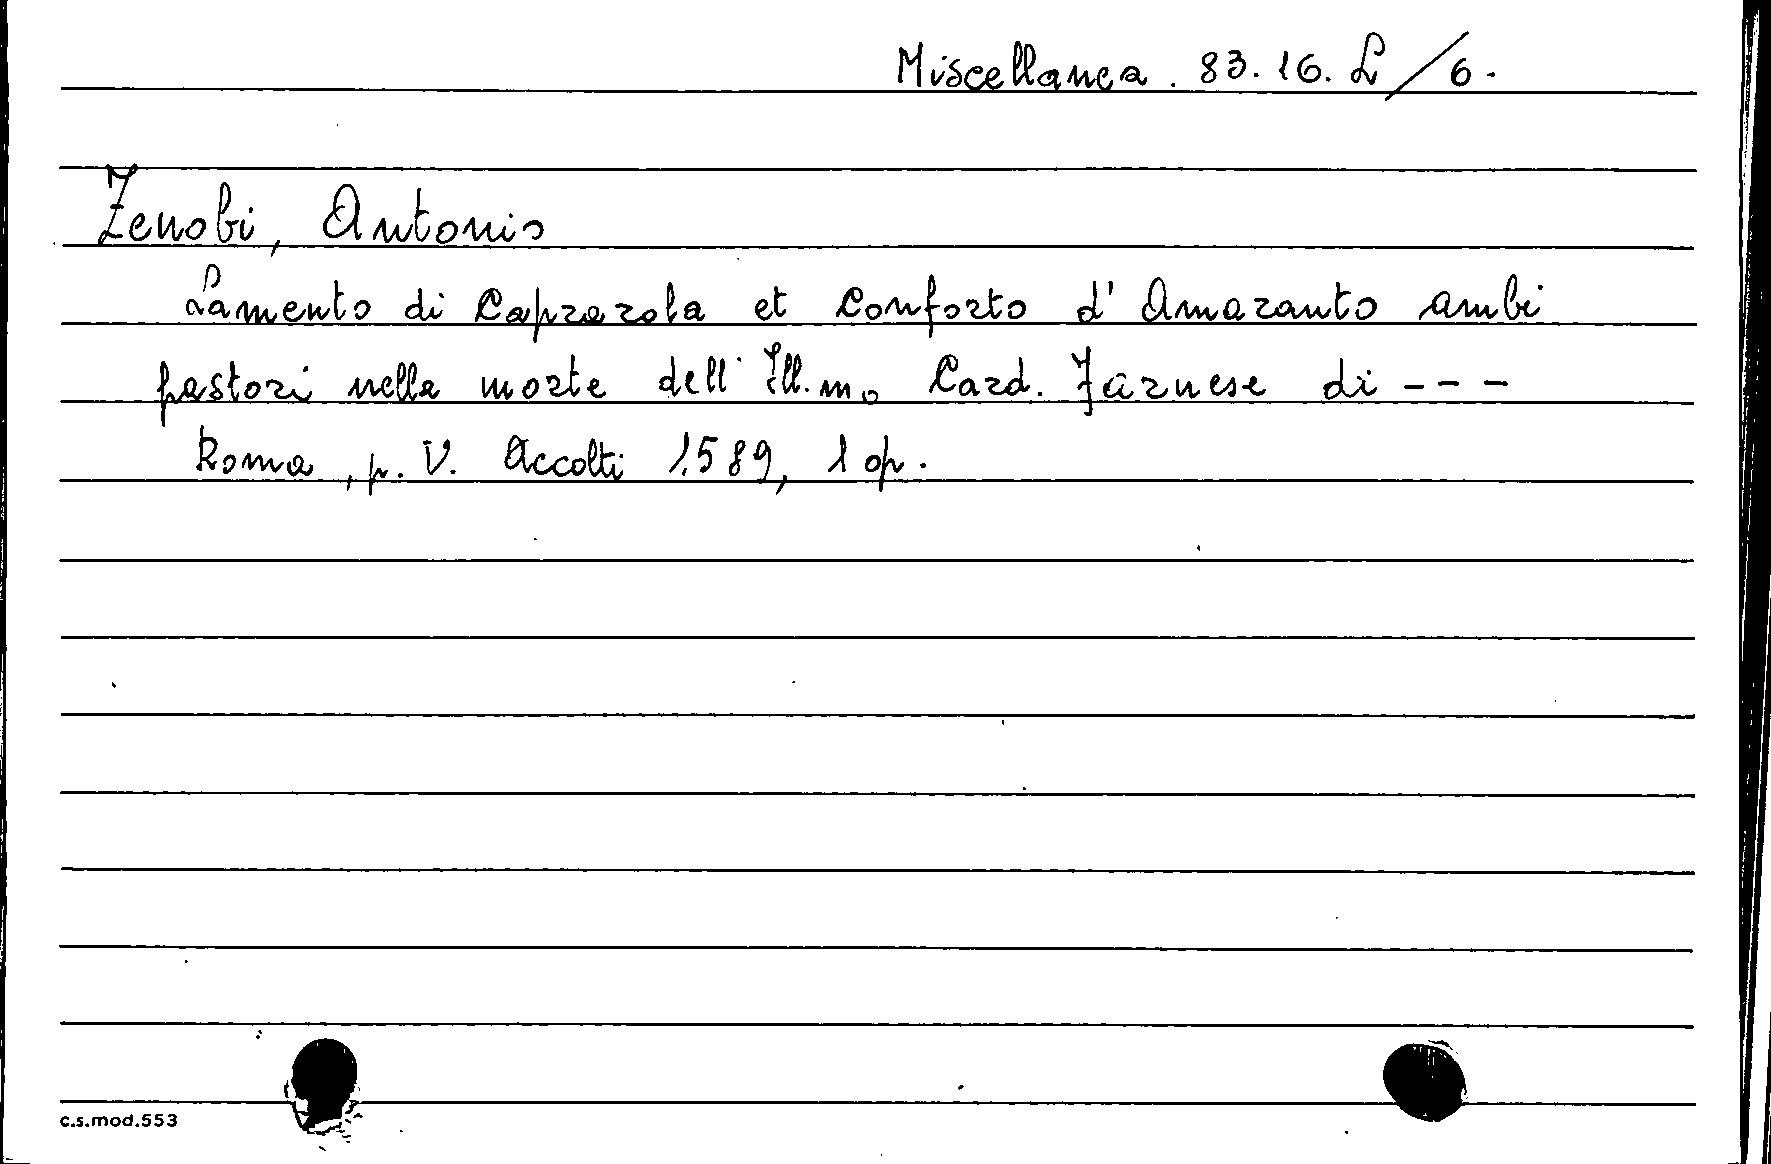 Miscellanea. 83. 16. L/6.
Zenobi, Antonio
Lamento di Caprarola et Conforto d'Amaranto ambi
pastori nella morte dell'Ill.mo Card. Farnese di ---
Roma, p. V. Accolti 1589, 1 op.
c.s.mod.553